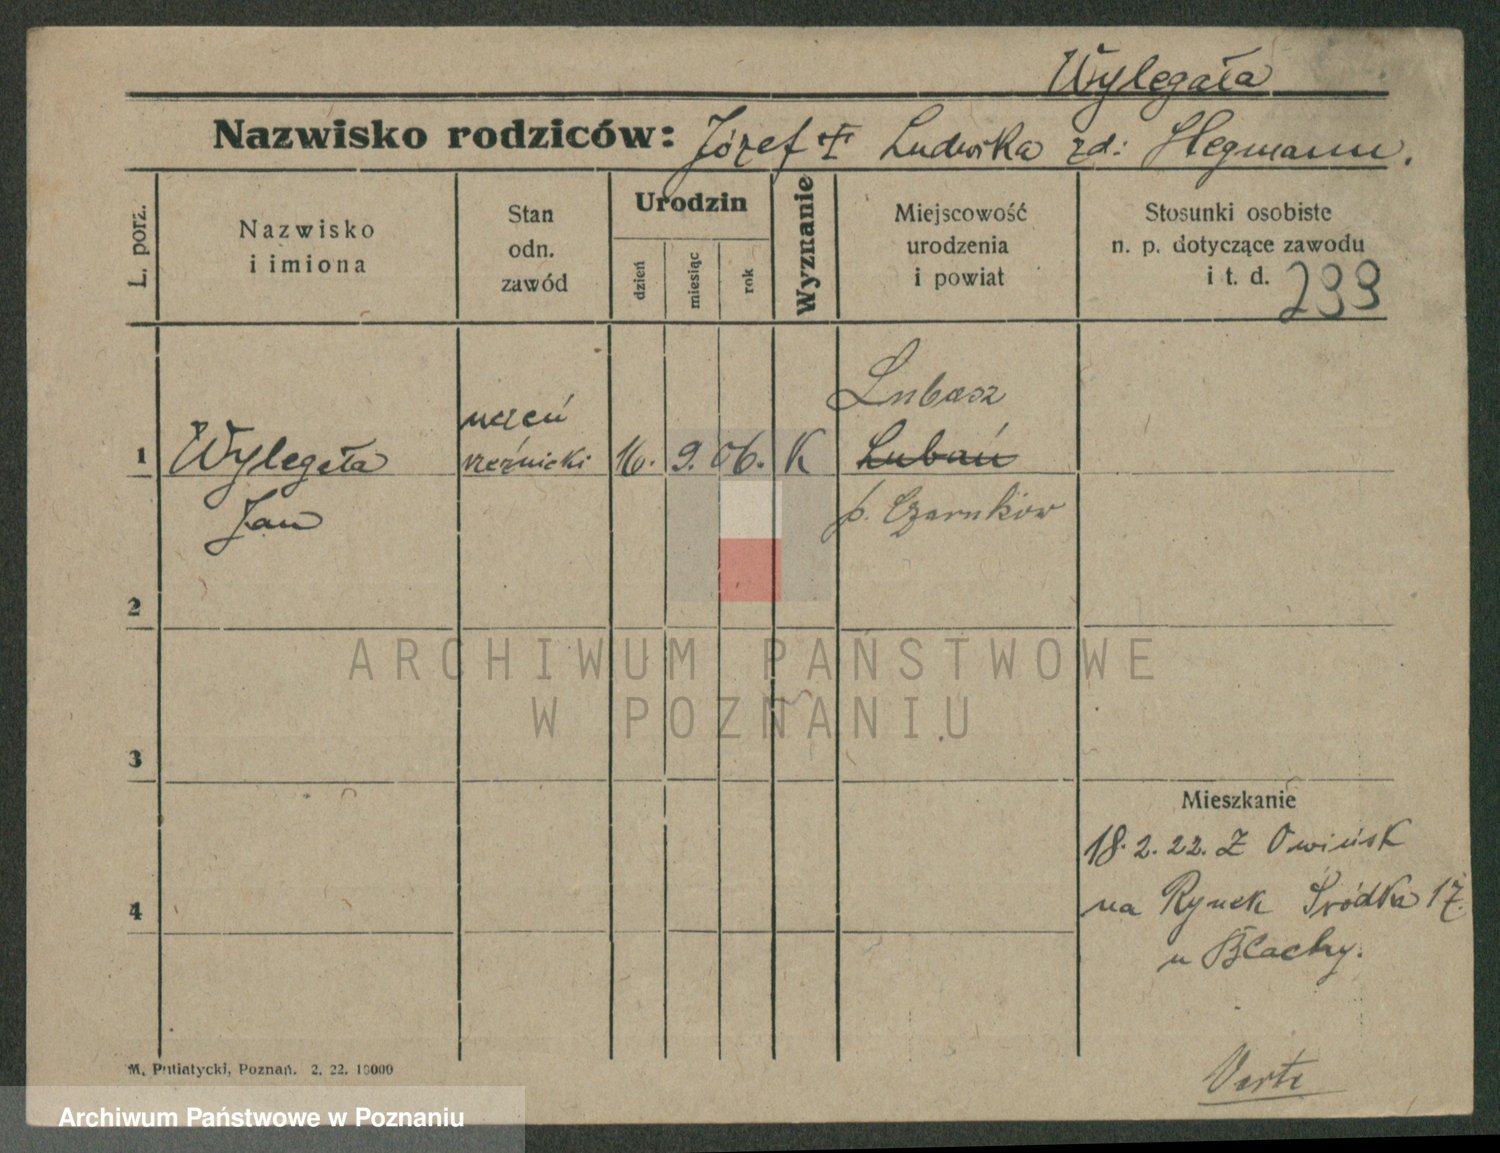 Wylegała
Nazwisko rodziców: Józef + Ludwika zd: Hegmann.
L. porz.
Nazwisko
i imiona
Stan
odn.
zawód
Urodzin
dzień
miesiąc
rok
Wyznanie
Miejscowość
urodzenia
i powiat
Stosunki osobiste
n. p. dotyczące zawodu
i t. d.
299
1
Wylegała
Jan
uczeń
rzeźnicki
16.
9.
06.
K
Lubasz
Lubań
p. Czarnków
2
3
4
ARCHIWUM PAŃSTWOWE
W POZNANIU
Mieszkanie
18.2.22. Z Owińsk
na Rynek Śródka 17.
u Blachy.
Verte
M. Putiatycki, Poznań. 2. 22. 10000
Archiwum Państwowe w Poznaniu